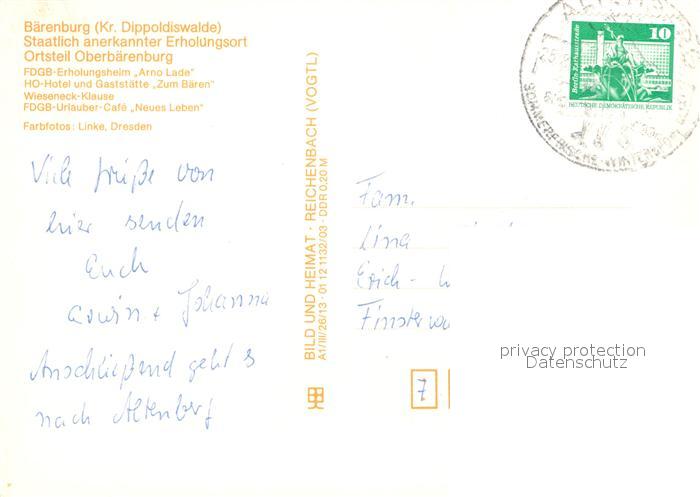 Bärenburg (Kr. Dippoldiswalde)
Staatlich anerkannter Erholungsort
Ortsteil Oberbärenburg
FDGB-Erholungsheim „Arno Lade"
HO-Hotel und Gaststätte „Zum Bären"
Wieseneck-Klause
FDGB-Urlauber-Café „Neues Leben"
Farbfotos: Linke, Dresden
Viele Grüße von
hier senden
Euch
Erwin + Johanna
Anschließend geht's
nach Altenberg
BILD UND HEIMAT · REICHENBACH (VOGTL)
A1/III/26/13 · 01 12 1132/03 · DDR 0,20 M
10
Berlin, Rathausstraße
DEUTSCHE DEMOKRATISCHE REPUBLIK
SOMMERFRISCHE
Fam.
Lina
Erich-
Finster
7
privacy protection
Datenschutz